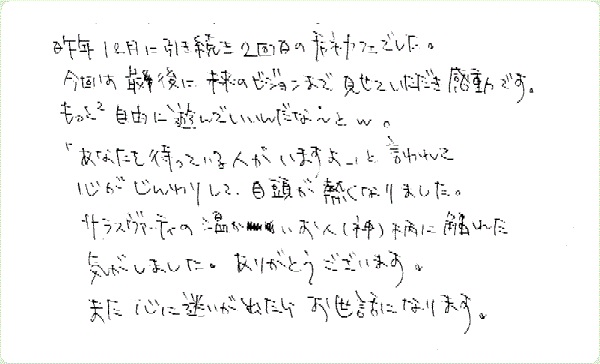 昨年12月に引き続き2回目の龍神カフェでした。
今回は最後に未来のビジョンまで見せていただき感動です。
もっと自由に遊んでいいんだな〜とw。
「あなたを待っている人がいますよ」と言われて
心がじんわりして、目頭が熱くなりました。
サラスヴァティの温かいお人(神)柄に触れた
気がしました。ありがとうございます。
また心に迷いがねたらお世話になります。